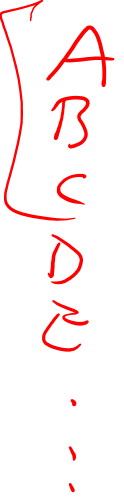 A
B
C
D
E
.
.
.